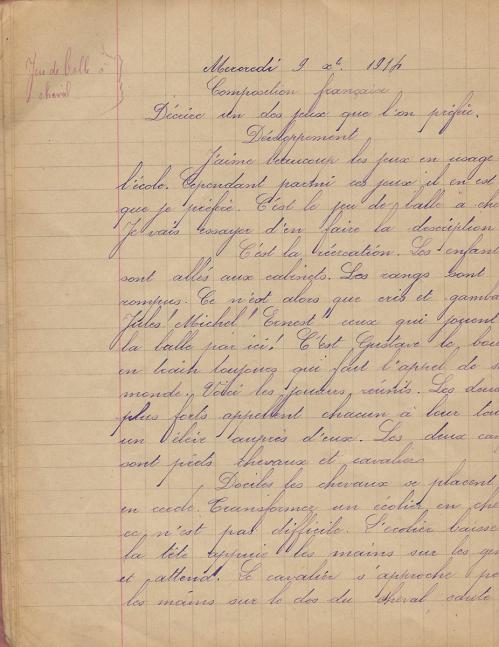 Jeu de balle à
cheval
Mercredi 9 Xbre 1914
Composition française
Décrire un des jeux que l'on préfère.
Développement
J'aime beaucoup les jeux en usage
l'école. Cependant parmi ces jeux il en est
que je préfère. C'est le jeu de balle à che
Je vais essayer d'en faire la description
C'est la récréation. Les enfant
sont allés aux cabinets. Les rangs sont
rompus. Ce n'est alors que cris et gamba
Jules! Michel! Ernest! ceux qui jouent
la balle par ici! C'est Gustave le bou
en train toujours qui fait l'appel de s
monde. Voici les joueurs réunis. Les deux
plus forts appellent chacun à leur tou
un élève auprès d'eux. Les deux cam
sont prêts chevaux et cavaliers
Dociles les chevaux se placent
en cercle. Transformez un écolier en che
ce n'est pas difficile. L'écolier baisse
la tête appuie les mains sur les gen
et attend. Le cavalier s'approche po
les mains sur le dos du cheval saute